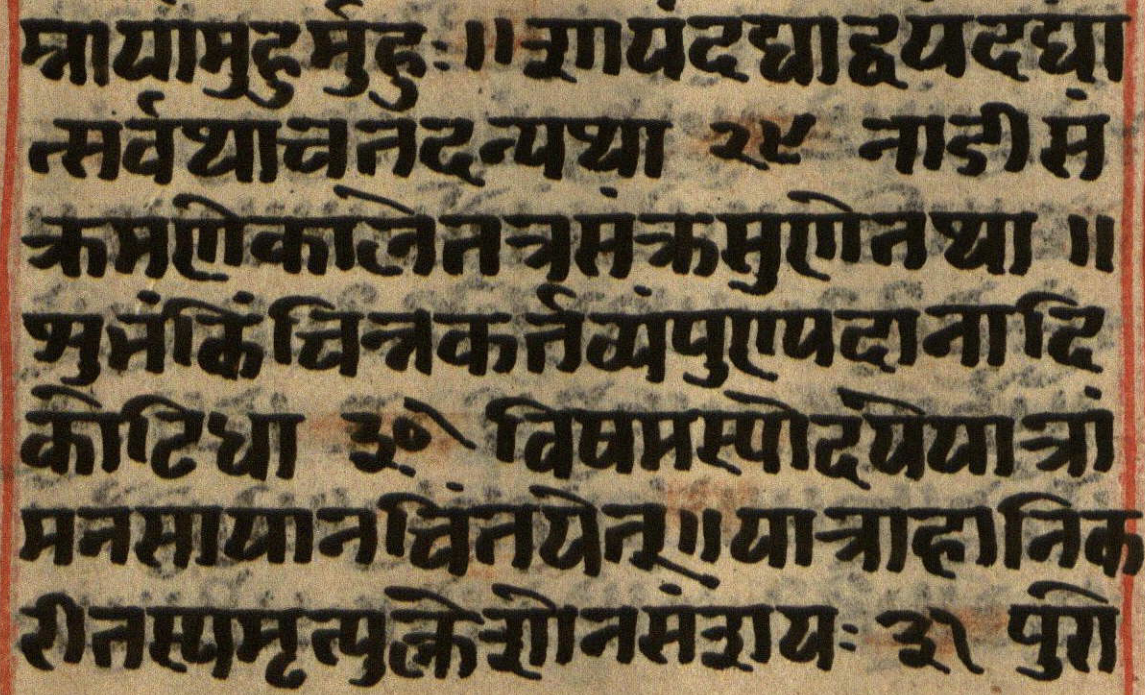 म्नायांमुहुर्मुहुः॥शायंदद्याद्वयंदद्या
त्सर्वथाचतदन्यथा २९ नाडीसं
क्रमणेकालेतत्रसंक्रमुणेतथा॥
शुभंकिंचिन्नकर्त्तव्यंपुण्यदानादि
कोटिधा ३० विषमस्योदयेयात्रां
मनसायानचिंतयेत्॥यात्राहानिक
रीतस्यमृत्युक्लेशोनसंशयः ३१ पुरो